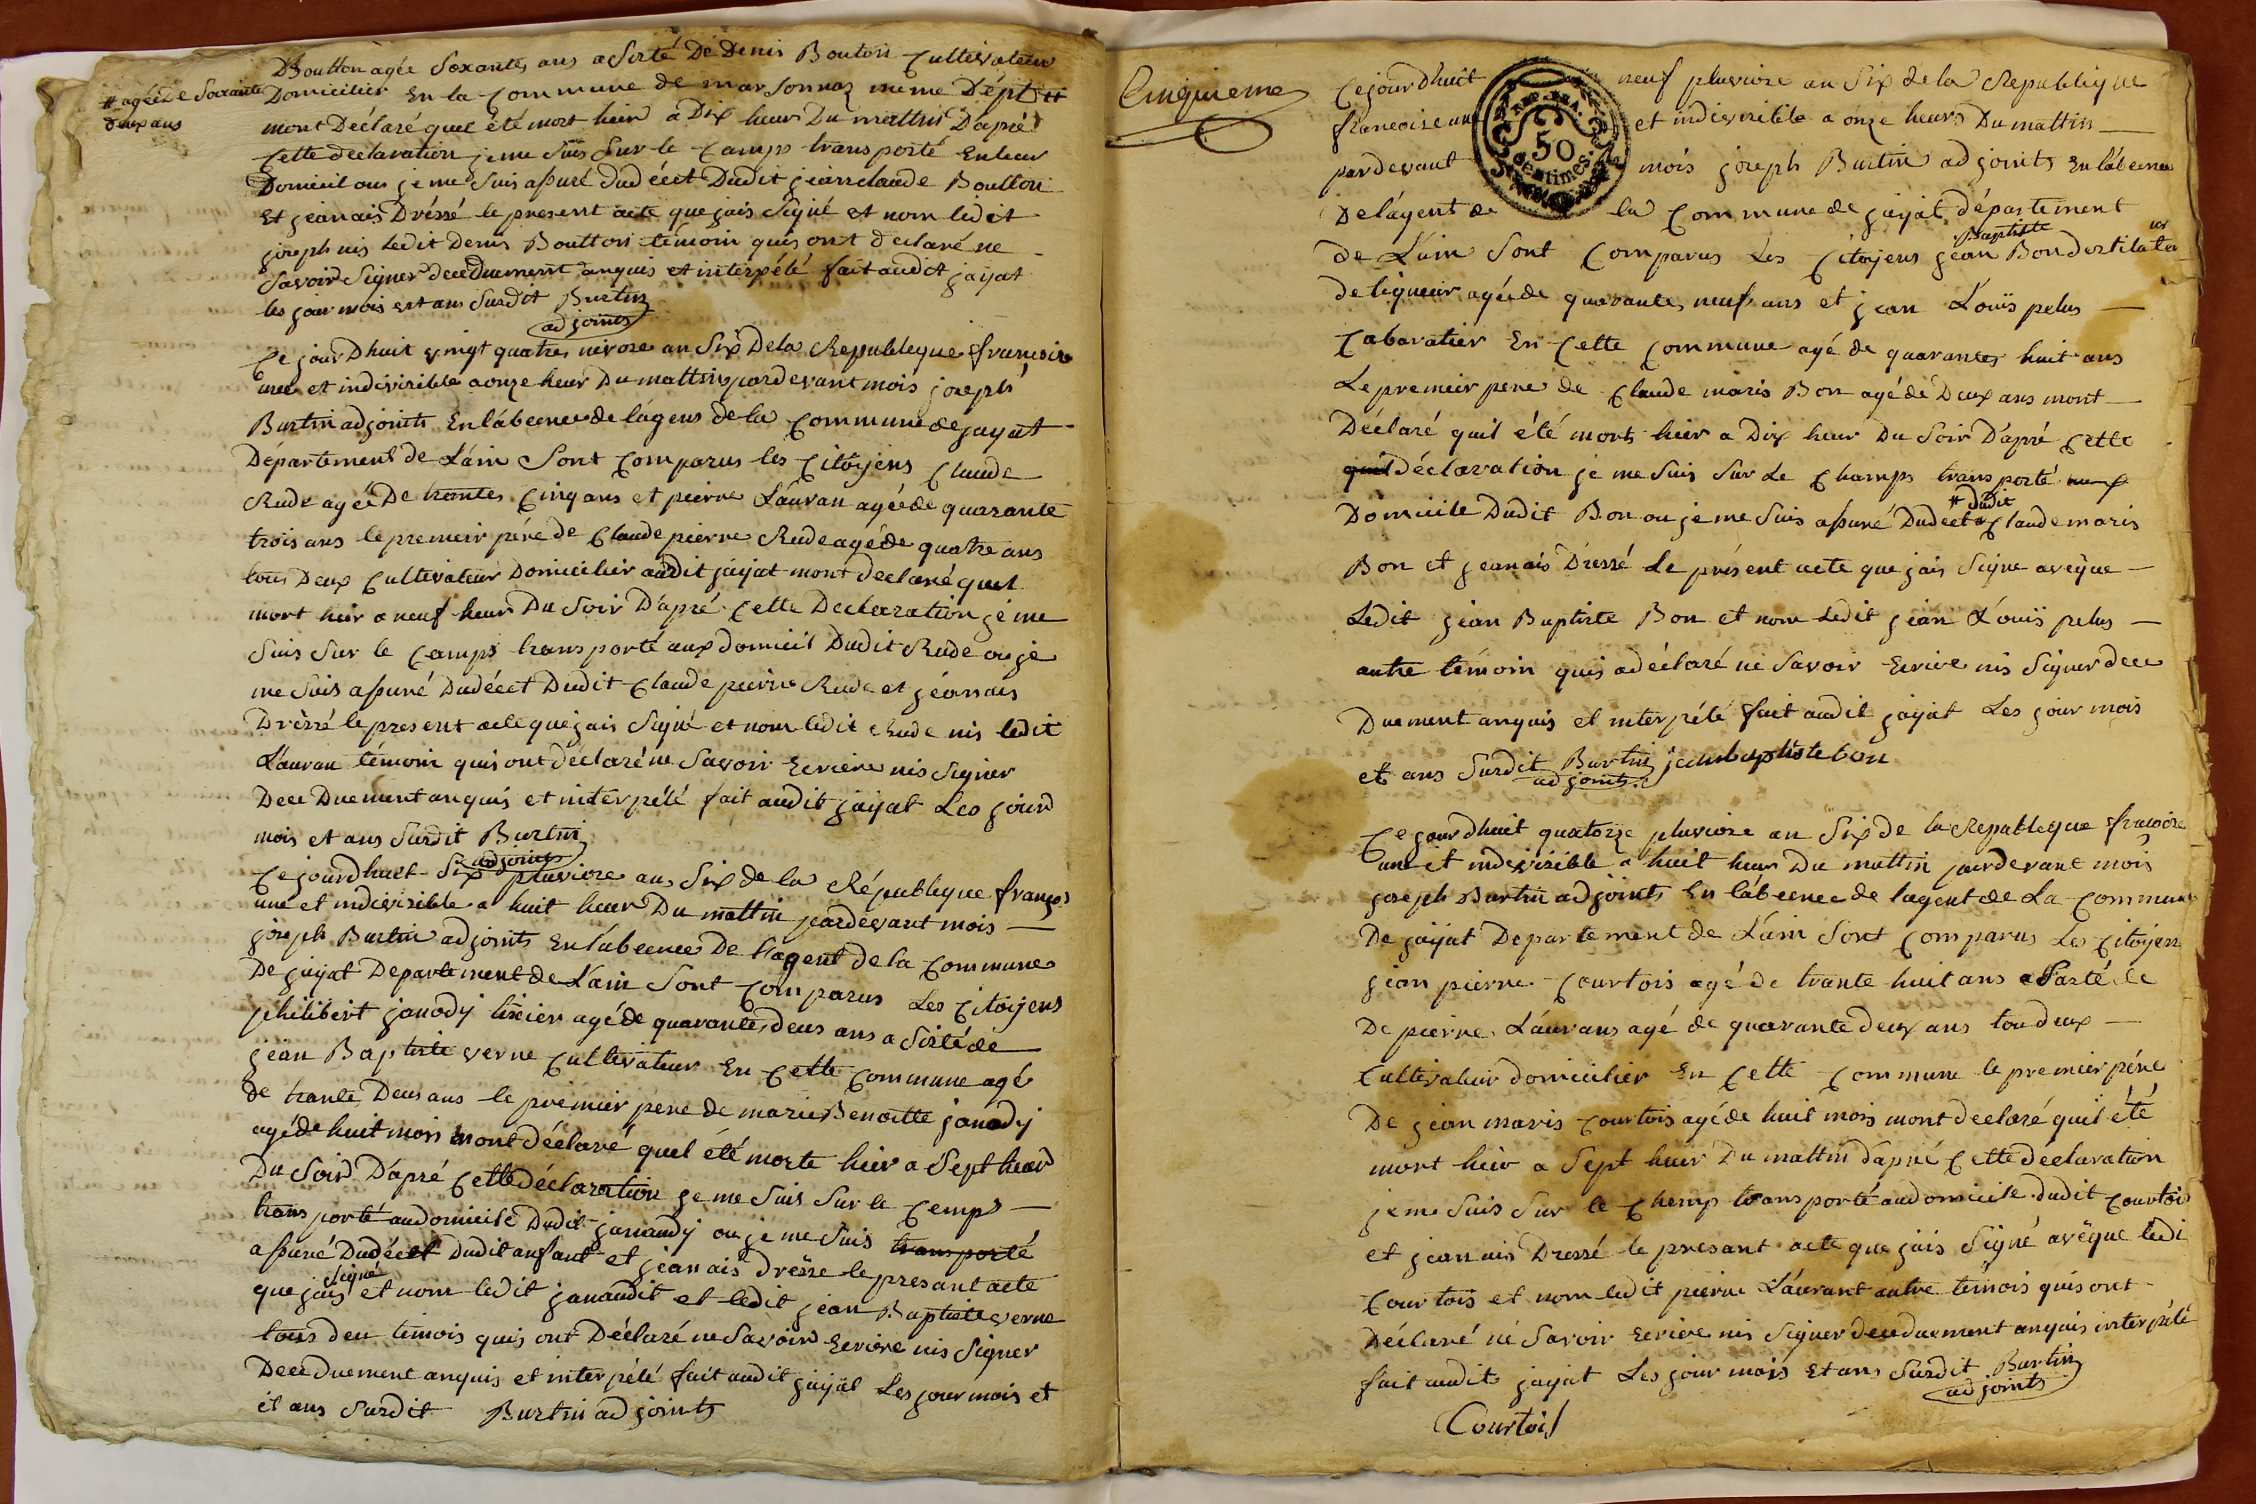 Boulton agée Soxante, ans a Sisté De Denis Bouton Cultivateur
# agée de Soxante
deux ans
Domicilier En la Commune de marsonnaz meme Dépt #
mont Déclaré quel été mort heir a Dix heur Du mattin D'apré
Cette declaration je me Suis Sur le Camps transporté En leur
Domicil ou je me Suis aSuré dud éect Dudit jean claude Boulton
Et jean ais Dréssé le present acte que jais Signé et nom ledit
joseph nis ledit Denis Boulton témoin quis ont declaré ne
Savoir Signer dece Duement anquis et interpélé fait audit jayat
les jour mois est ans Surdit Burtin
adjoints
Ce jour Dhuit vingt quatre, nivose an Six De la Republeque francoise
une et indivisible a onze heur Du mattin pardevant mois joseph
Burtin adjoints En lábcence de lágens de la Commune de jayat
Departement de Láin Sont Comparus les Citoÿens Claude
Rude agée De trantes Cinq ans et pierre Láuran agée de quarante
trois ans le premeir pére de Claude pierre Rude agé de quatre ans
tous Deux Cultivateur Domicilier audit jayat mont declaré quel
mort heir a neuf heur Du Soir D'apré Cette Declaration je me
Suis Sur le Camps transporté aux domicil Dudit Rude ou je
me Suis aSuré Dudéect Dudit Claude pierre Rude et jéan ais
Dréssé le present acte que jais Signé et nom ledit Rude nis ledit
Láuran témoin quis ont déclaré ne Savoir Ecriere nis Signer
Dece Duement anquis et interpélé fait audit jayat Les jour
mois et ans Surdit Burtin
adjoints
Ce jourdhuit Six pluviose an Six de la République françois
une et indivisible a huit heur Du mattin pardevant mois
joseph Burtin adjoints En lábcence De L'agent de la Commune
De jayat Departement de Láin Sont Comparus Les Citoÿens
philibert janody tixier agé de quarante, deus ans a Sisté de
jéan Baptiste verne Cultivateur En Cette Commune agé
de trante Deus ans le premier pere de marie Benoitte janody
agé de huit mois mont déclaré quel été morte heir a Sept heur
Du Soir D'apré Cette déclaration je me Suis Sur le Cemps
trans porté audomicile Dudit janaudy ou je me Suis transporté
aSuré Dudéect Dudit anfant et jéan ais dréssé le presant acte
que jais Signé et nom ledit janaudit et ledit jéan Baptiste verne
tous deu témois quis ont Déclaré ne Savoir Ecriere nis Signer
Dece duement anquis et interpélé fait audit jayat Les jour mois et
et ans Surdit Burtin adjoints
Cinquieme
Cejourdhuit neuf pluviose an Six de la Republique
francoise une et indivisible a onze heurs Du mattin
REP. FRA.
50
centimes
pardevant mois joseph Burtin adjoints En lábcence
De lágent de la Commune de jayat département
de Láin Sont Comparus Les Citoÿens jéan Baptiste Bon destilateur
de liqueur agée de quarante, neuf ans et jean Loüis pelus
Cabaratier En Cette Commune agé de quarantes huit ans
Le premeir pere de Claude maris Bon agé de Deux ans mont
Déclaré quil été morts heir a Dix heur Du Soir D'apré Cette
quil déclaration je me Suis Sur Le Champs transporté aux
Domicile Dudit Bon ou je me Suis aSuré Dudéect # dudit Claude maris
Bon et jean ais Dressé Le présent acte que jais Signe aveque
Ledit jéan Baptiste Bon et nom Ledit jéan Loüis pelus
autre témoin quis adéclaré né Savoir Ecriere nis Signer dece
Duement anquis et interpélé fait audit jayat Les jour mois
et ans Surdit Burtin jeanbaptiste bon
adjoints
Ce jourdhuit quatorze pluviose an Six de la Republeque françoise
une et indivisible a huit heur Du mattin pardevant mois
joseph Burtin adjoints En lábcence de lagent de La Commune
De jayat Departement de Láin Sont Comparus Les Citoÿen
jéan pierre Courtois agé de trante huit ans a Sarté de
De pierre Láurans agé de quarante deux ans tou deux
Cultivateur domicilier En Cette Commune le premier pére
De jéan maris Courtois agé de huit mois mont declaré quil été
mort heir a Sept heur Du mattin d'apré Cette déclaration
je me Suis Sur le Chemp transporté audomicile dudit Courtois
et jean ais Dressé le presant acte que jais Signé avëque ledi
Courtois et nom ledit pierre Láurant autre témois quis ont
Déclaré né Savoir Ecriere nis Signer deceduement anquis interpélé
fait audits jayat Les jour mois Et ans Surdit Burtin
adjoints
Courtois